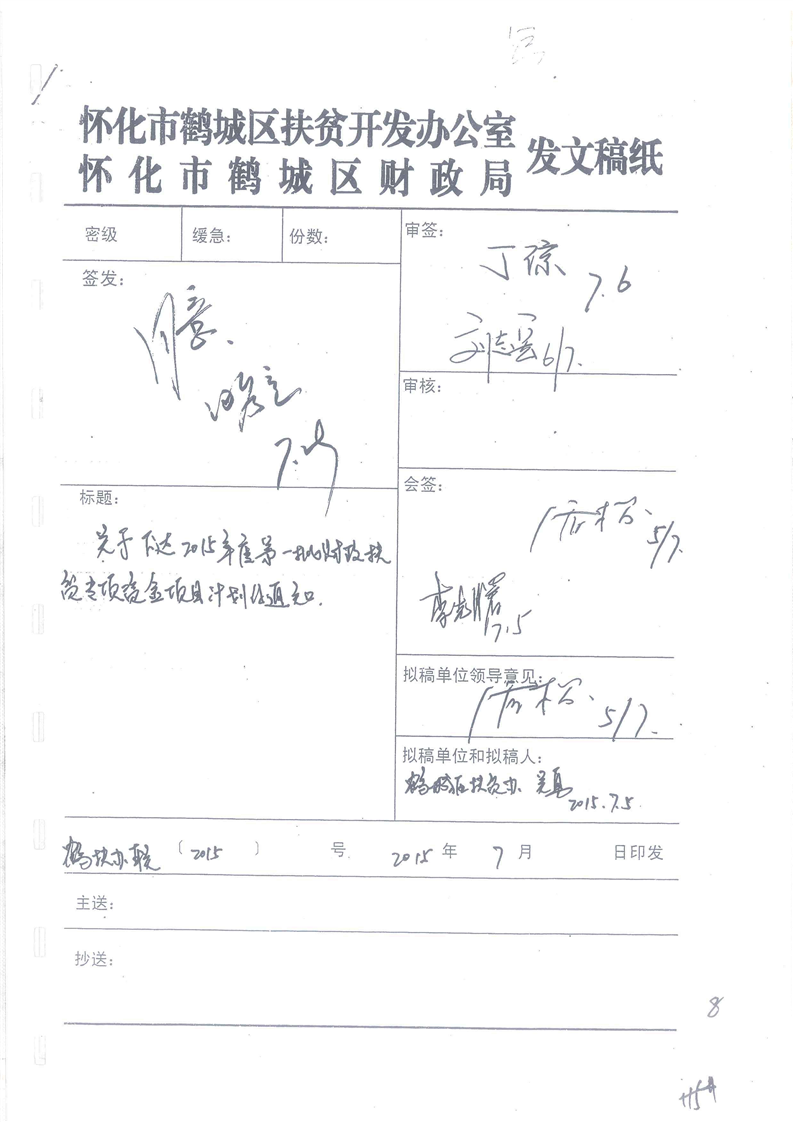 怀化市鹤城区扶贫开发办公室
怀化市鹤城区财政局
发文稿纸
密级
缓急：
份数：
审签：
丁琼
7.6
6/7.
签发：
同意.
审核：
标题：
关于下达2015年度第一批财政扶
贫专项资金项目计划的通知.
会签：
5/7.
7.5
拟稿单位领导意见：
5/7.
拟稿单位和拟稿人：
鹤城区扶贫办
2015.7.5
鹤扶办联〔2015〕 号 2015年 7月 日印发
主送：
抄送：
8